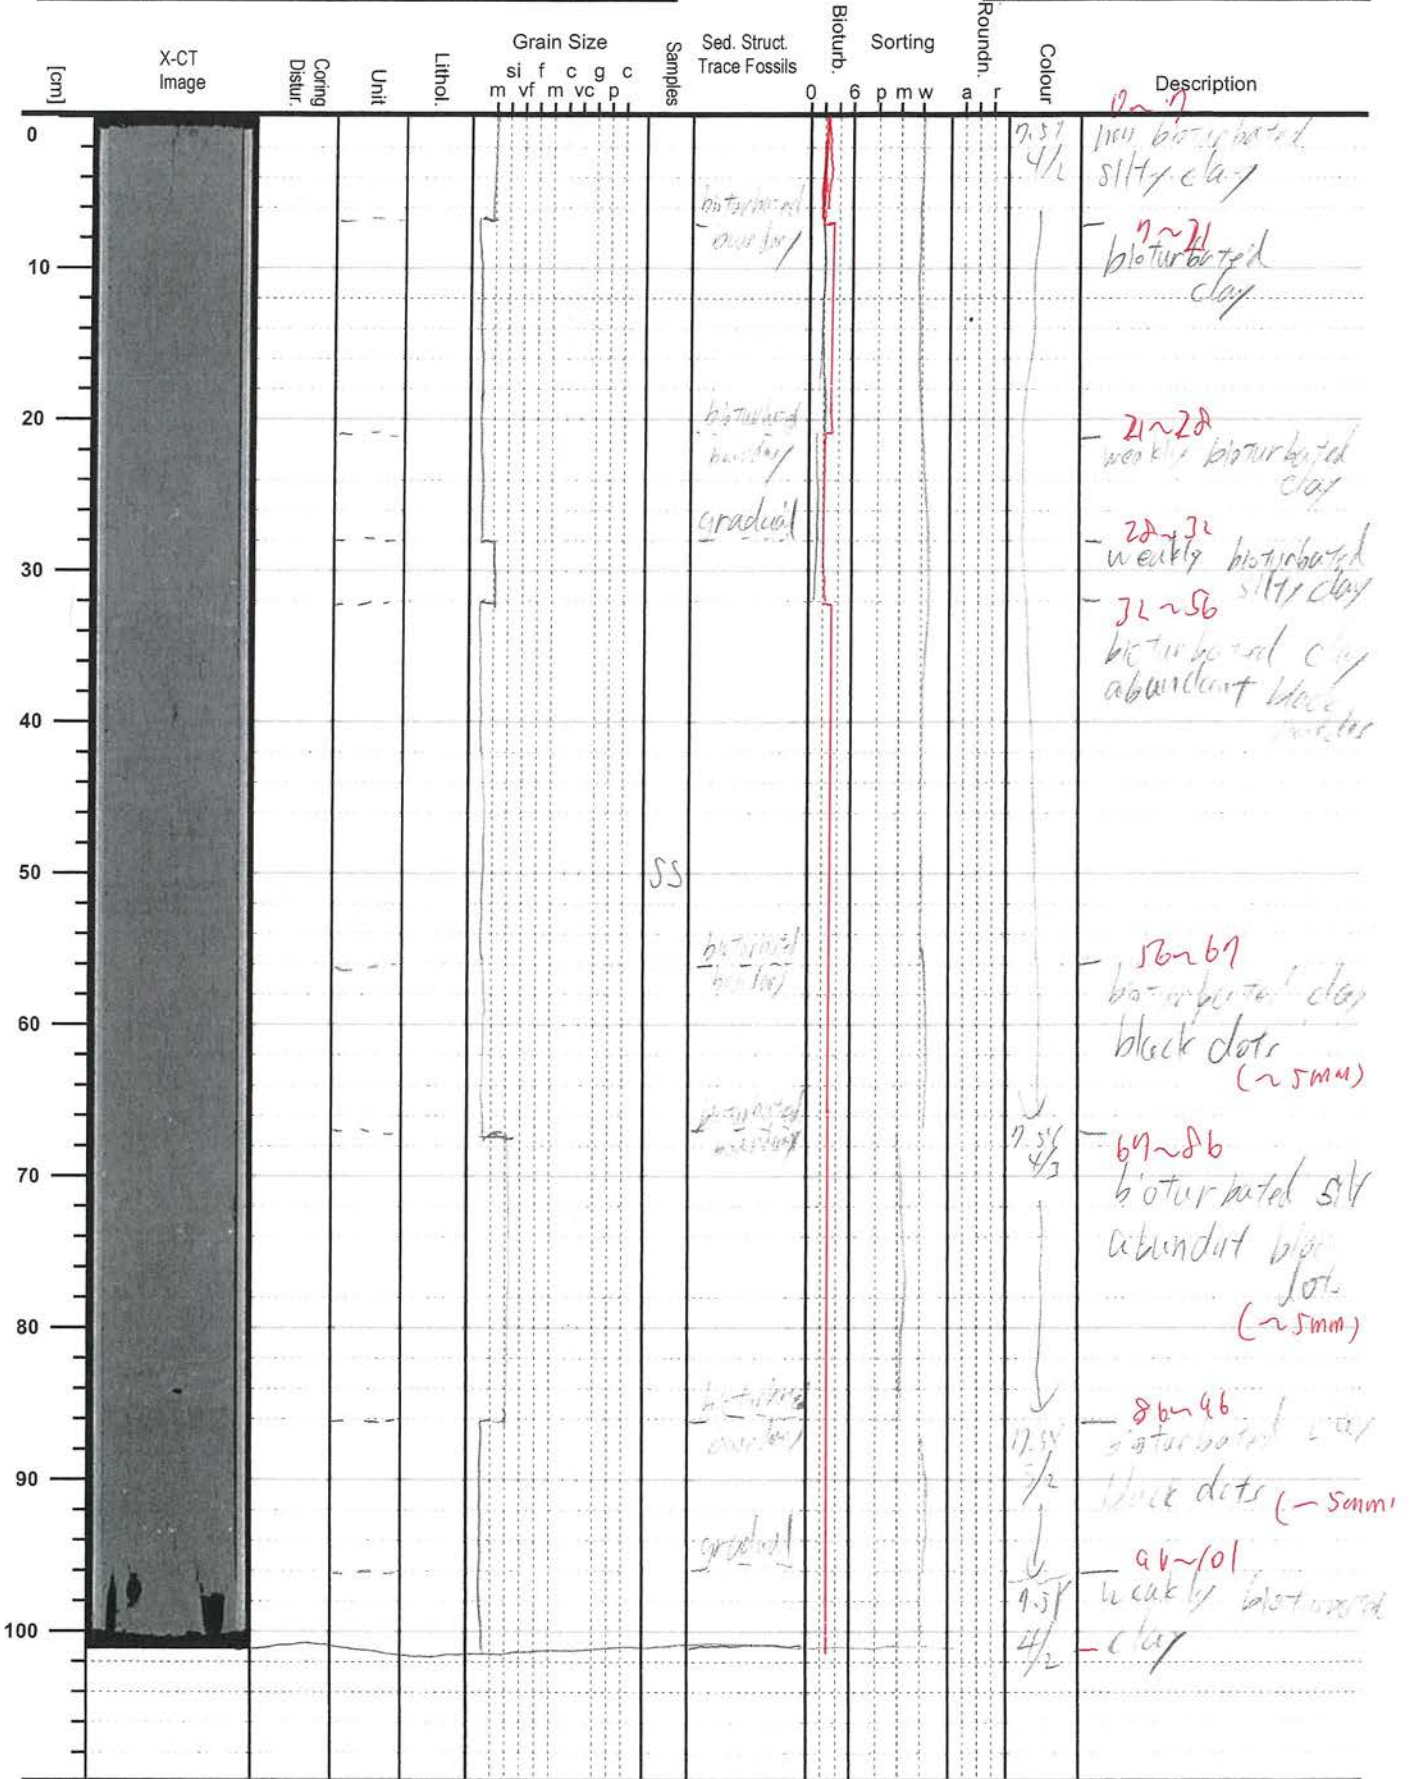 [cm]
X-CT
Image
Coring
Distur.
Unit
Lithol.
Grain Size
si f c g c
m vf m vc p
Samples
Sed. Struct.
Trace Fossils
Bioturb.
0 6
Sorting
p m w
Roundn.
a r
Colour
Description
0
10
20
30
40
50
60
70
80
90
100
SS
bioturbated
boundary
bioturbated
boundary
gradual
bioturbated
boundary
bioturbated
boundary
bioturbated
boundary
gradual
7.5Y
4/2
7.5Y
4/3
7.5Y
/2
7.5Y
4/2
0~7
bioturbated
silty clay
7~21
bioturbated
clay
21~28
weakly bioturbated
clay
28~32
weakly bioturbated
silty clay
32~56
bioturbated clay
abundant black
56~67
bioturbated clay
black dots
(~5mm)
67~86
bioturbated silt
abundat
dots
(~5mm)
86~96
bioturbated clay
black dots (~5mm)
96~101
weakly bioturbated
clay